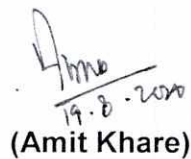 19.8.2020
(Amit Khare)